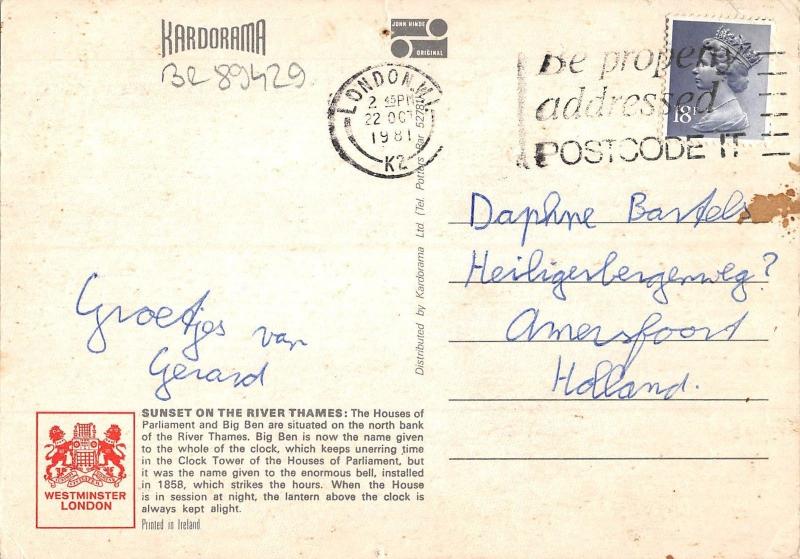 KARDORAMA
BR 89429
JOHN HINDE
ORIGINAL
LONDON.W.1.
2 45PM
22 OCT
1981
K2
Be properly
addressed
POSTCODE IT
18P
Distributed by Kardorama Ltd (Tel. Potters Bar 52781)
Daphne Bartels
Heiligerbergerweg?
Amersfoort
Holland.
Groetjes van
Gerard
SUNSET ON THE RIVER THAMES: The Houses of
Parliament and Big Ben are situated on the north bank
of the River Thames. Big Ben is now the name given
to the whole of the clock, which keeps unerring time
in the Clock Tower of the Houses of Parliament, but
it was the name given to the enormous bell, installed
in 1858, which strikes the hours. When the House
is in session at night, the lantern above the clock is
always kept alight.
Printed in Ireland
WESTMINSTER
LONDON